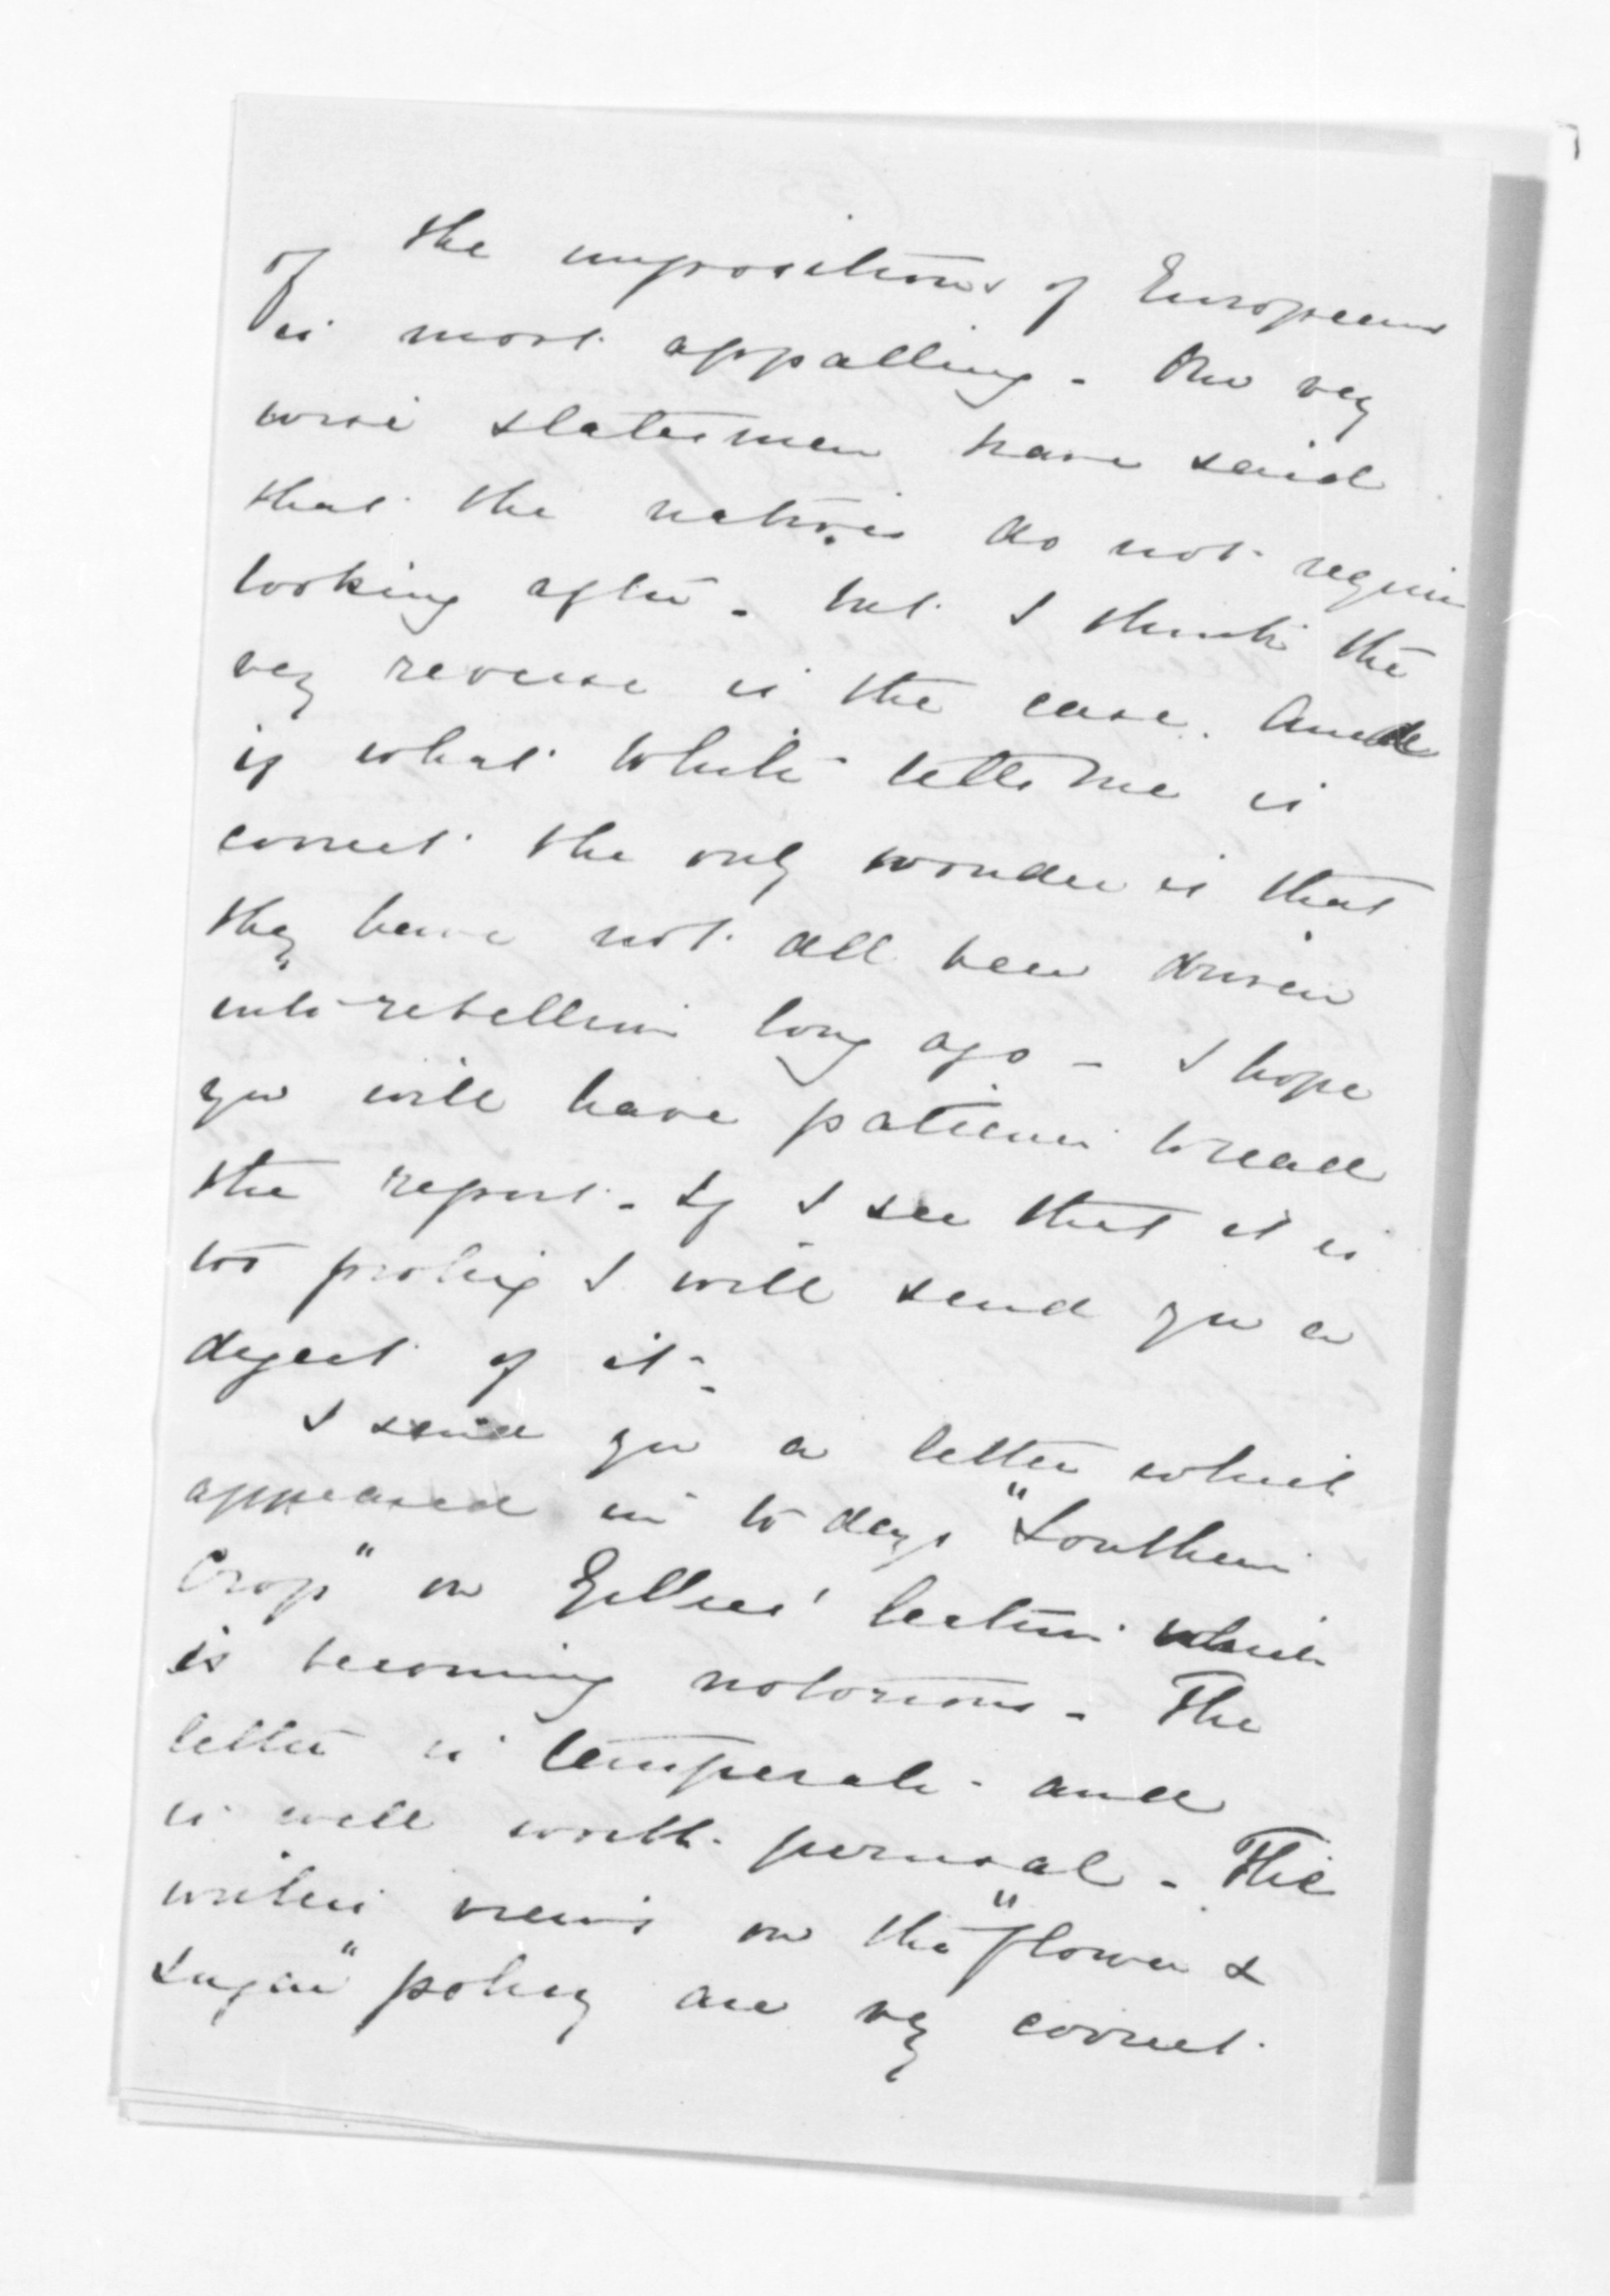 of the impositions of Europeans
is most appalling - Our very
wise statesmen have said
that the natives do not require
looking after - but I think the
very reverse is the case. And
if what White tells me is
correct the only wonder is that
they have not all been driven
into rebellion long ago - I hope
you will have patience to read
the report - If I see that it is
too prolix I will send you a
digest of it -
I send you a letter which
appeared in to days "Southern
Cross" on lecture which
is becoming notorious - The
letter is temperate and
is well worth perusal - The
writers views on the "flour &
sugar" policy are very correct